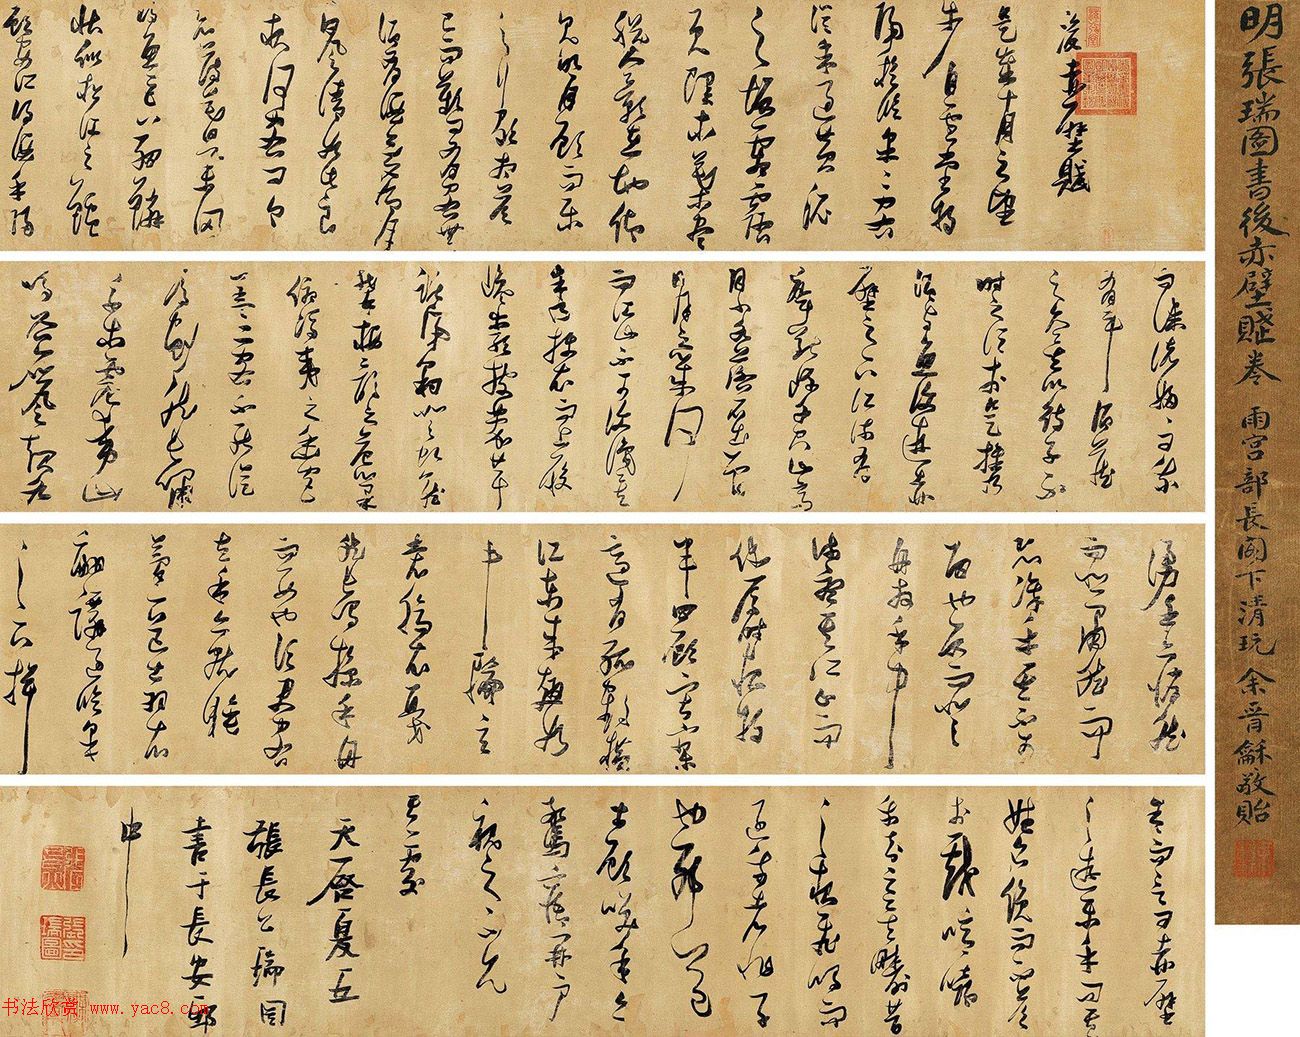 明張瑞圖書後赤壁賦卷 雨宮部長閣下清玩 余晉龢敬貽
後赤壁賦
是歲十月之望
步自雪堂將
歸於臨皋二客
從予過黃泥
之坂霜露
既降木葉盡
脫人影在地仰
見明月顧而樂
之行歌相答
已而歎曰有客無
酒有酒無肴月
白風清如此良
夜何客曰今
者薄暮舉網
得魚巨口細鱗
狀似松江之鱸
顧安所得酒乎歸
而謀諸婦婦曰我
有斗酒藏
之久矣以待子不
時之須於是攜
酒與魚復遊赤
壁之下江流有
聲斷岸千尺山高
月小水落石出曾
日月之幾何
而江山不可復識矣
予乃攝衣而上履
巉岩披蒙茸
踞虎豹登虬龍
攀栖鶻之危巢
俯馮夷之幽宮
蓋二客不能從
焉劃然長嘯
草木震動山
鳴谷應風起水
湧予亦悄然
而悲肅然而
恐凜乎其不可
留也反而登
舟放乎中
流聽其所止而
休焉時將
半四顧寂寥
適有孤鶴橫
江東來翅如
車輪玄
裳縞衣戛
然長鳴掠予舟
而西也須臾客
去予亦就睡
夢一道士羽衣
蹁躚過臨皋
之下揖
予而言曰赤壁
之遊樂乎問其
姓名俛而不答
嗚呼噫嘻
我知之矣疇昔
之夜飛鳴而
過我者非子
也耶道
士顧笑予亦
驚寤開戶
視之不見
其處
天啓夏五
張長公瑞圖
書于長安邸
中
书法欣赏 www.yac8.com